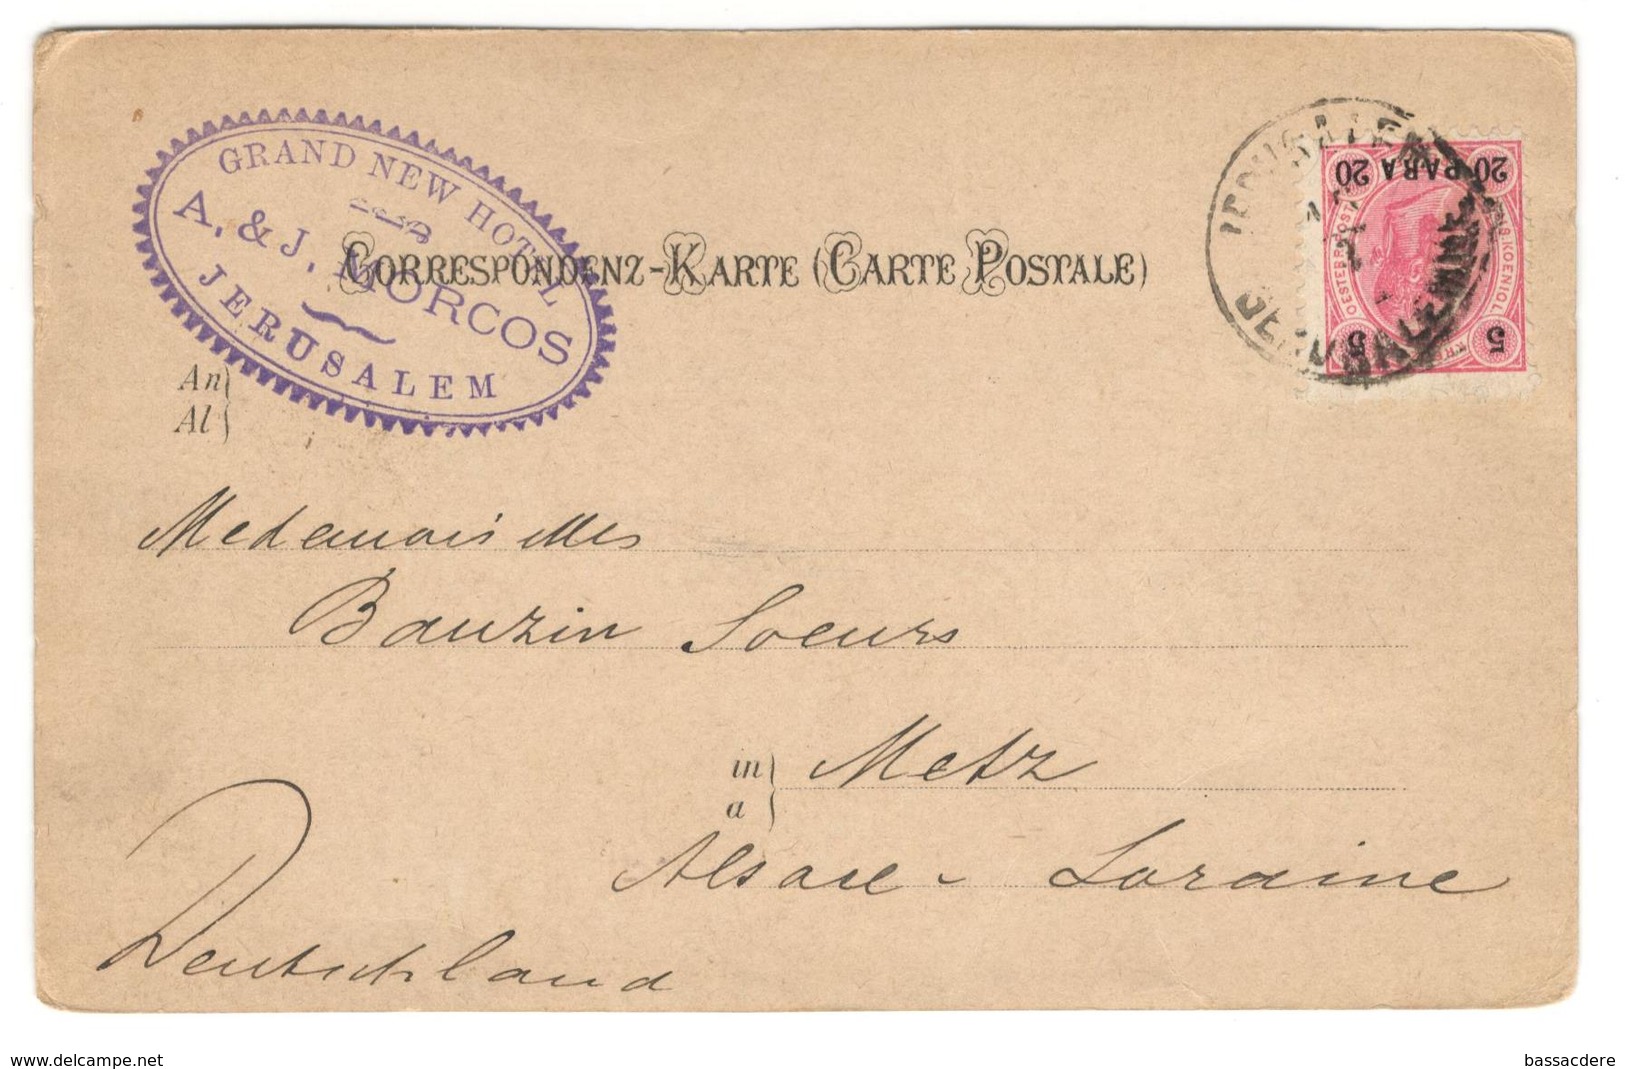 GRAND NEW HOTEL
A. & J. MORCOS
JERUSALEM
CORRESPONDENZ-KARTE (CARTE POSTALE)
20 PARA 20
5 5
JERUSALEM
An
Al
Medemoiselles
Bauzin Soeurs
in
a
Metz
Alsace-Loraine
Deutschland
www.delcampe.net
bassacdere